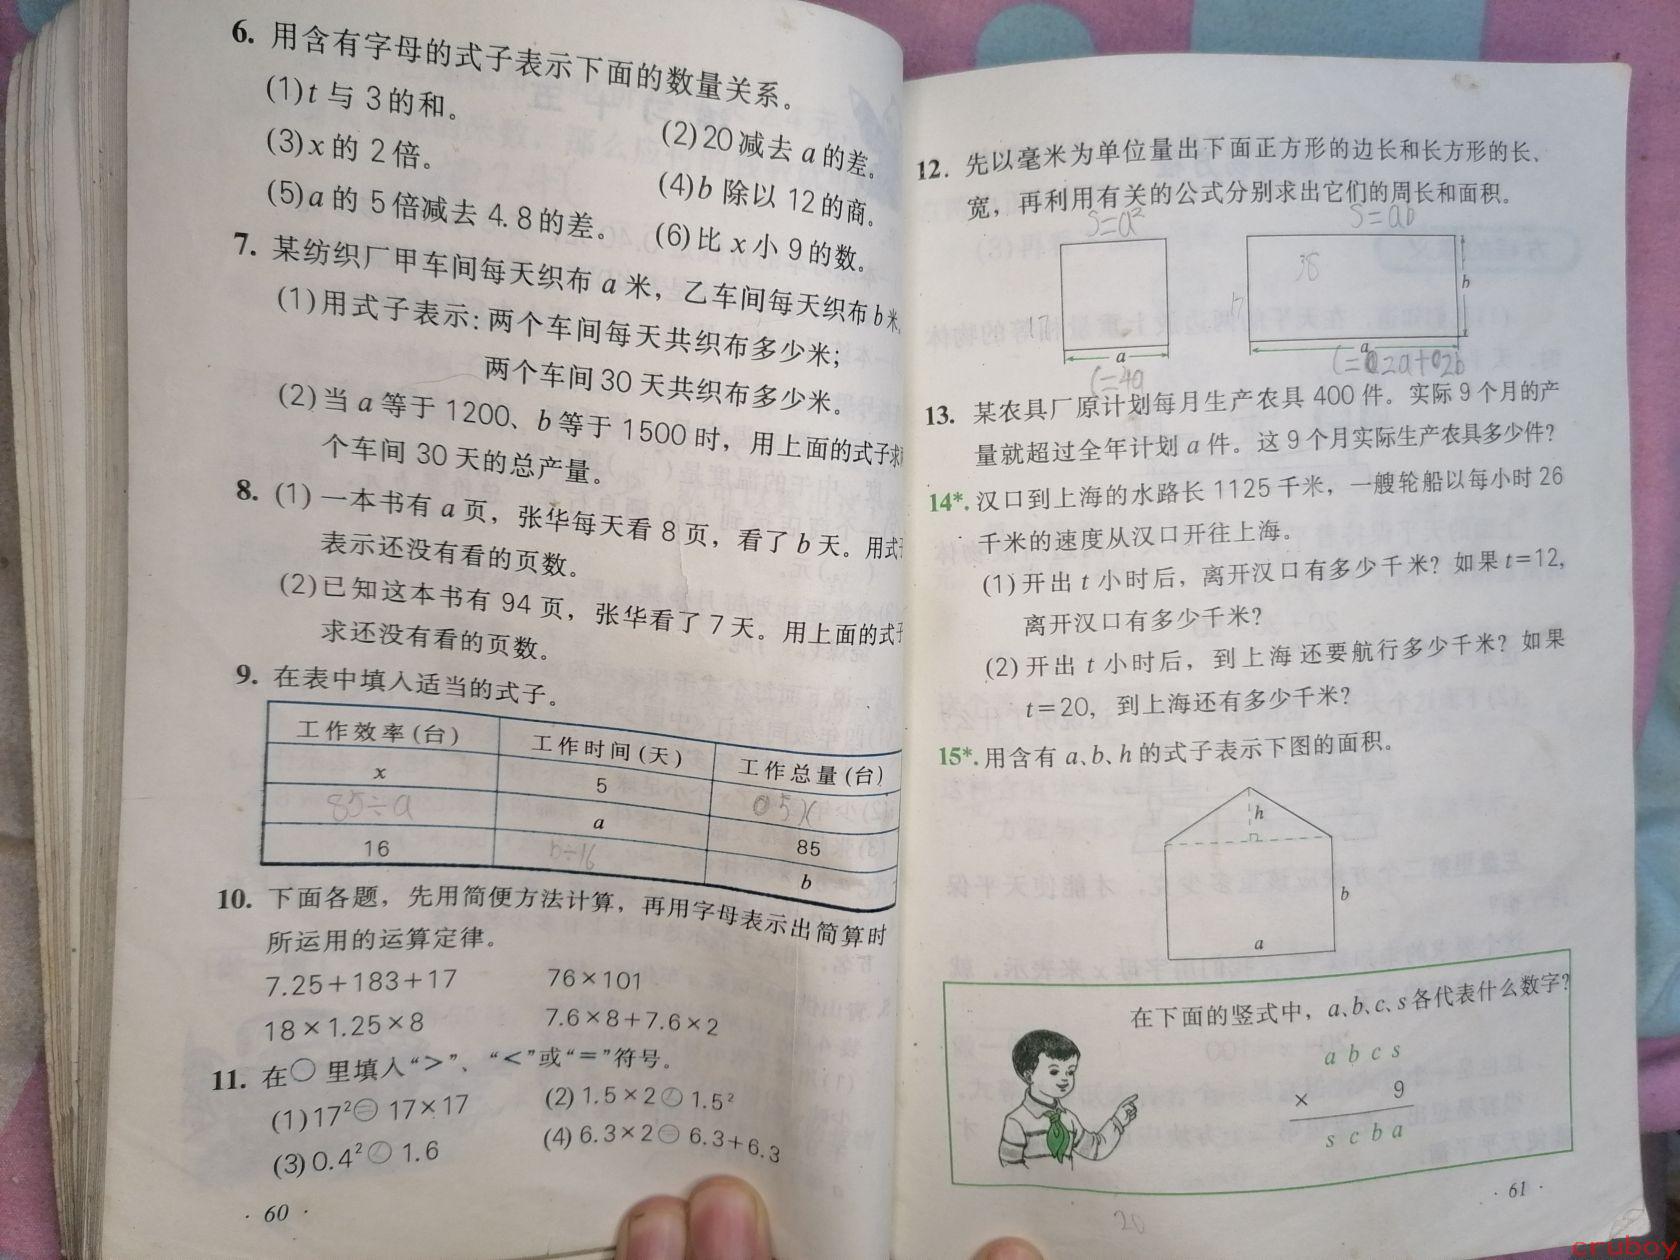 6. 用含有字母的式子表示下面的数量关系。
(1)t与3的和。
(2)20减去a的差。
(3)x的2倍。
(4)b除以12的商。
(5)a的5倍减去4.8的差。
(6)比x小9的数。
7. 某纺织厂甲车间每天织布a米，乙车间每天织布b米
(1)用式子表示：两个车间每天共织布多少米；
两个车间30天共织布多少米。
(2)当a等于1200、b等于1500时，用上面的式子求
个车间30天的总产量。
8. (1)一本书有a页，张华每天看8页，看了b天。用式
表示还没有看的页数。
(2)已知这本书有94页，张华看了7天。用上面的式
求还没有看的页数。
9. 在表中填入适当的式子。
工作效率(台) 工作时间(天) 工作总量(台)
x 5 5x
85÷a a 85
16 b÷16 b
10. 下面各题，先用简便方法计算，再用字母表示出简算时
所运用的运算定律。
7.25+183+17 76×101
18×1.25×8 7.6×8+7.6×2
11. 在○里填入“>”、“<”或“=”符号。
(1)17²=17×17 (2)1.5×2○1.5²
(3)0.4²○1.6 (4)6.3×2=6.3+6.3
· 60 ·
12. 先以毫米为单位量出下面正方形的边长和长方形的长、
宽，再利用有关的公式分别求出它们的周长和面积。
S=a² S=ab
38
17 17 b
a a
C=4a C=2a+2b
13. 某农具厂原计划每月生产农具400件。实际9个月的产
量就超过全年计划a件。这9个月实际生产农具多少件？
14*. 汉口到上海的水路长1125千米，一艘轮船以每小时26
千米的速度从汉口开往上海。
(1)开出t小时后，离开汉口有多少千米？如果t=12，
离开汉口有多少千米？
(2)开出t小时后，到上海还要航行多少千米？如果
t=20，到上海还有多少千米？
15*. 用含有a、b、h的式子表示下图的面积。
h
b
a
在下面的竖式中，a、b、c、s各代表什么数字？
a b c s
× 9
s c b a
· 61 ·
20
cruboy